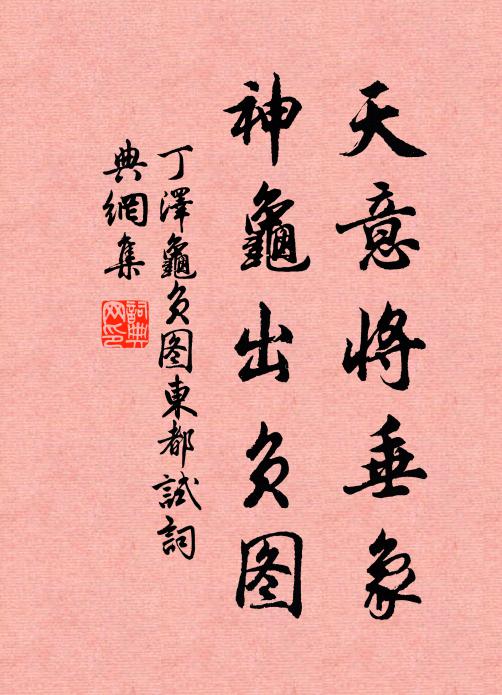 天意將垂象
神龜出负图
丁澤龜负图東都試詞
典網集
詞典
网印